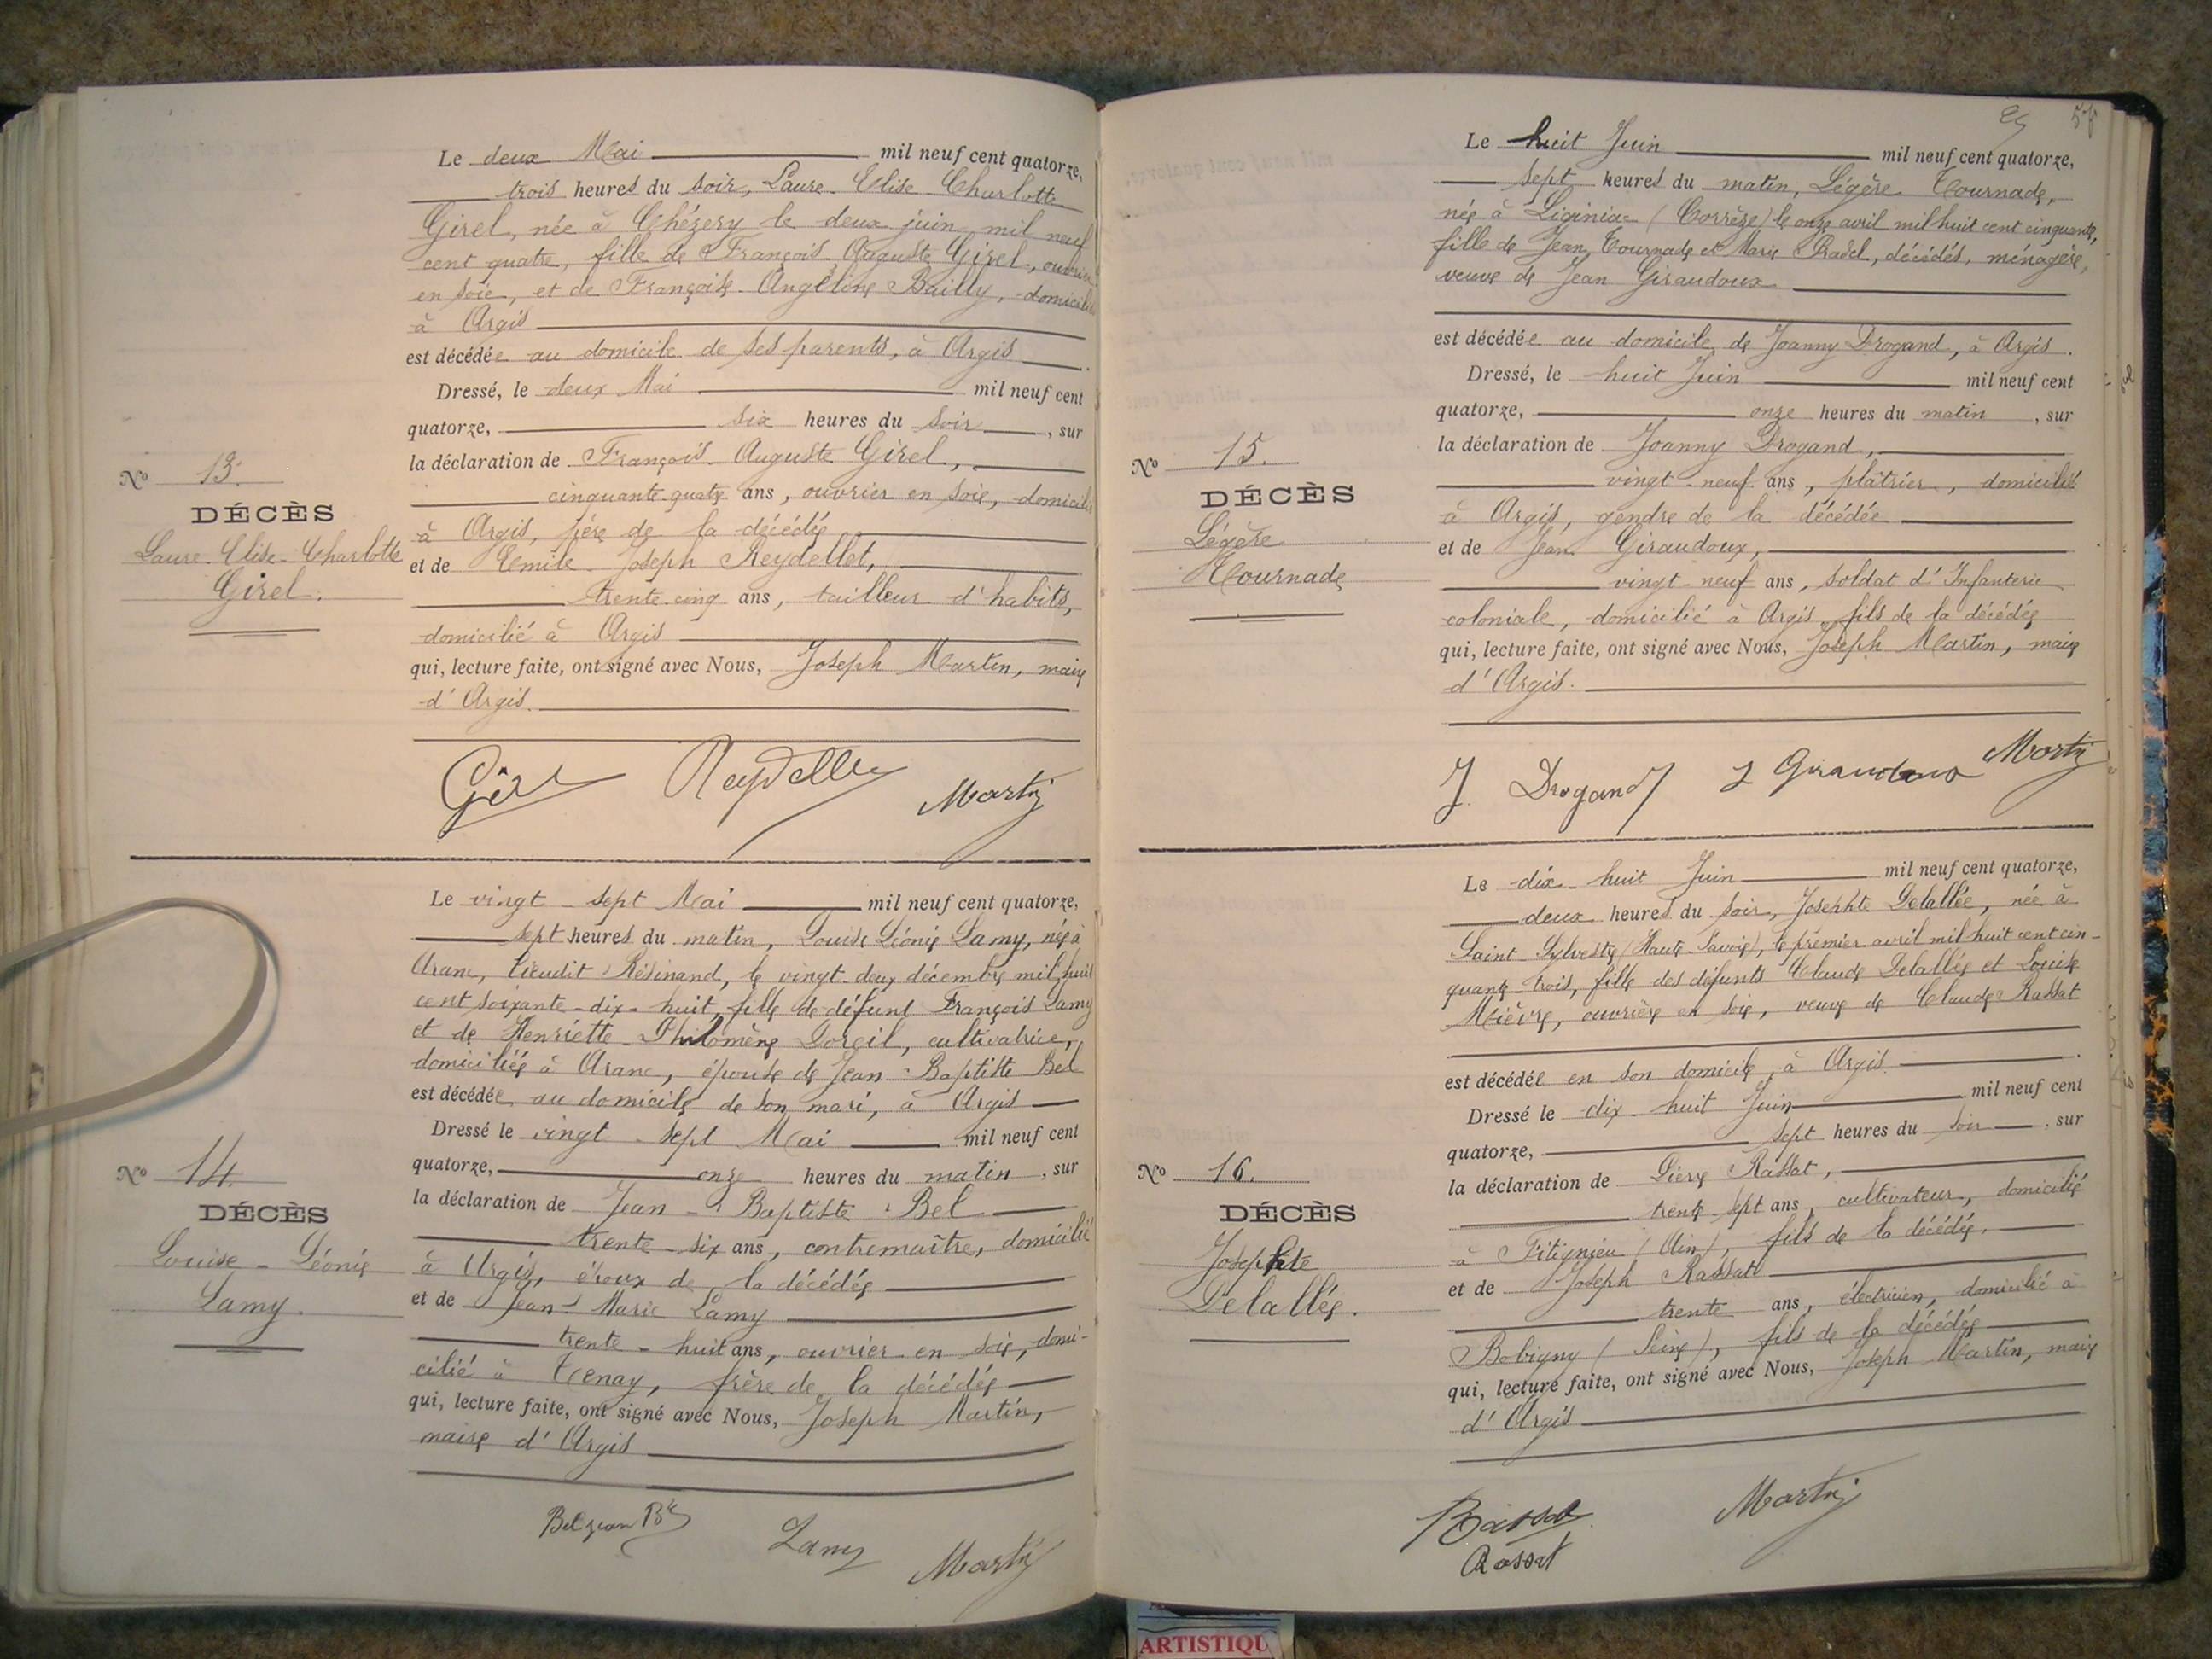 Le deux Mai mil neuf cent quatorze,
trois heures du soir, Laure Elise Charlotte
Girel, née à Chézery le deux juin mil neuf
cent quatre, fille de François Auguste Girel, ouvrier
en soie, et de Françoise Angéline Bailly, domiciliés
à Argis
est décédée au domicile de ses parents, à Argis.
Dressé, le deux Mai mil neuf cent
quatorze, six heures du soir, sur
la déclaration de François Auguste Girel,
cinquante quatre ans, ouvrier en soie, domicilié
à Argis, père de la décédée
et de Emile Joseph Reydellet,
trente cinq ans, tailleur d'habits,
domicilié à Argis
qui, lecture faite, ont signé avec Nous, Joseph Martin, maire
d'Argis.
No 13.
DÉCÈS
Laure-Elise-Charlotte
Girel.
Girel Reydellet Martin
Le vingt-sept Mai mil neuf cent quatorze,
sept heures du matin, Louise Léonie Lamy, née à
Aranc, lieudit Résinand, le vingt-deux décembre mil huit
cent soixante-dix-huit, fille de défunt François Lamy
et de Henriette-Philomène Goreil, cultivatrice,
domiciliée à Aranc, épouse de Jean-Baptiste Bel
est décédée au domicile de son mari, à Argis
Dressé le vingt-sept Mai mil neuf cent
quatorze, onze heures du matin, sur
la déclaration de Jean-Baptiste Bel
trente-six ans, contremaître, domicilié
à Argis, époux de la décédée
et de Jean-Marie Lamy
trente-huit ans, ouvrier en soie, domi-
cilié à Tenay, frère de la décédée
qui, lecture faite, ont signé avec Nous, Joseph Martin,
maire d'Argis
No 14.
DÉCÈS
Louise-Léonie
Lamy.
Bel jean Bte Lamy Martin
Le huit Juin mil neuf cent quatorze,
sept heures du matin, Légère Tournade,
née à Liginiac (Corrèze) le onze avril mil huit cent cinquante,
fille de Jean Tournade et Marie Pradel, décédés, ménagère,
veuve de Jean Giraudoux
est décédée au domicile de Joanny Drogand, à Argis.
Dressé, le huit Juin mil neuf cent
quatorze, onze heures du matin, sur
la déclaration de Joanny Drogand,
vingt-neuf ans, plâtrier, domicilié
à Argis, gendre de la décédée
et de Jean Giraudoux,
vingt-neuf ans, soldat d'Infanterie
coloniale, domicilié à Argis, fils de la décédée
qui, lecture faite, ont signé avec Nous, Joseph Martin, maire
d'Argis.
No 15.
DÉCÈS
Légère
Tournade
J. Drogand J Giraudoux Martin
Le dix-huit Juin mil neuf cent quatorze,
deux heures du soir, Josephte Delallée, née à
Saint-Sylvestre (Haute-Savoie), le premier avril mil huit cent cin-
quante-trois, fille des défunts Claude Delallée et Louise
Mièvre, ouvrière en soie, veuve de Claude Rassat
est décédée en son domicile, à Argis.
Dressé le dix-huit Juin mil neuf cent
quatorze, sept heures du soir, sur
la déclaration de Pierre Rassat,
trente-sept ans, cultivateur, domicilié
à Fitignieu (Ain), fils de la décédée,
et de Joseph Rassat
trente ans, électricien, domicilié à
Bobigny (Seine), fils de la décédée
qui, lecture faite, ont signé avec Nous, Joseph Martin, maire
d'Argis
No 16.
DÉCÈS
Josephte
Delallée.
Rassat Martin
Rassat
ARTISTIQU